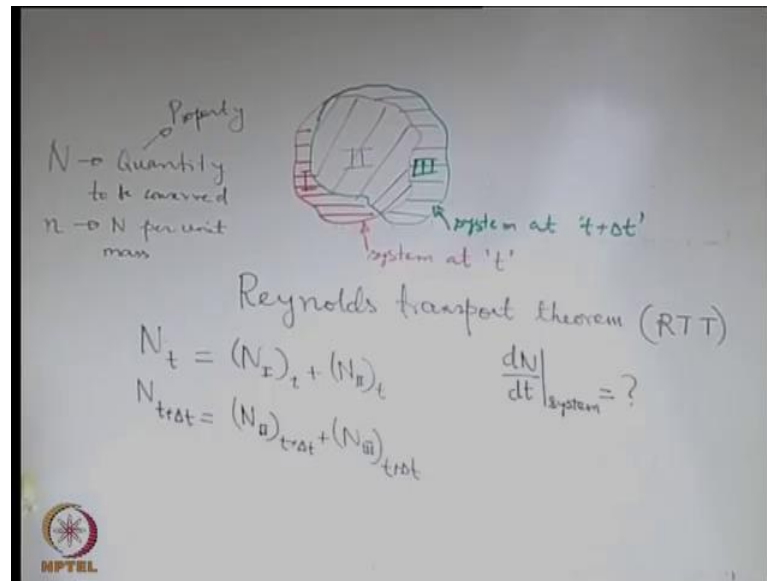 Property
N → Quantity
to be conserved
n → N per unit
mass
I
II
III
system at 't+Δt'
system at 't'
Reynolds transport theorem (RTT)
N_t = (N_I)_t + (N_II)_t
dN/dt|_system = ?
N_t+Δt = (N_II)_t+Δt + (N_III)_t+Δt
NPTEL